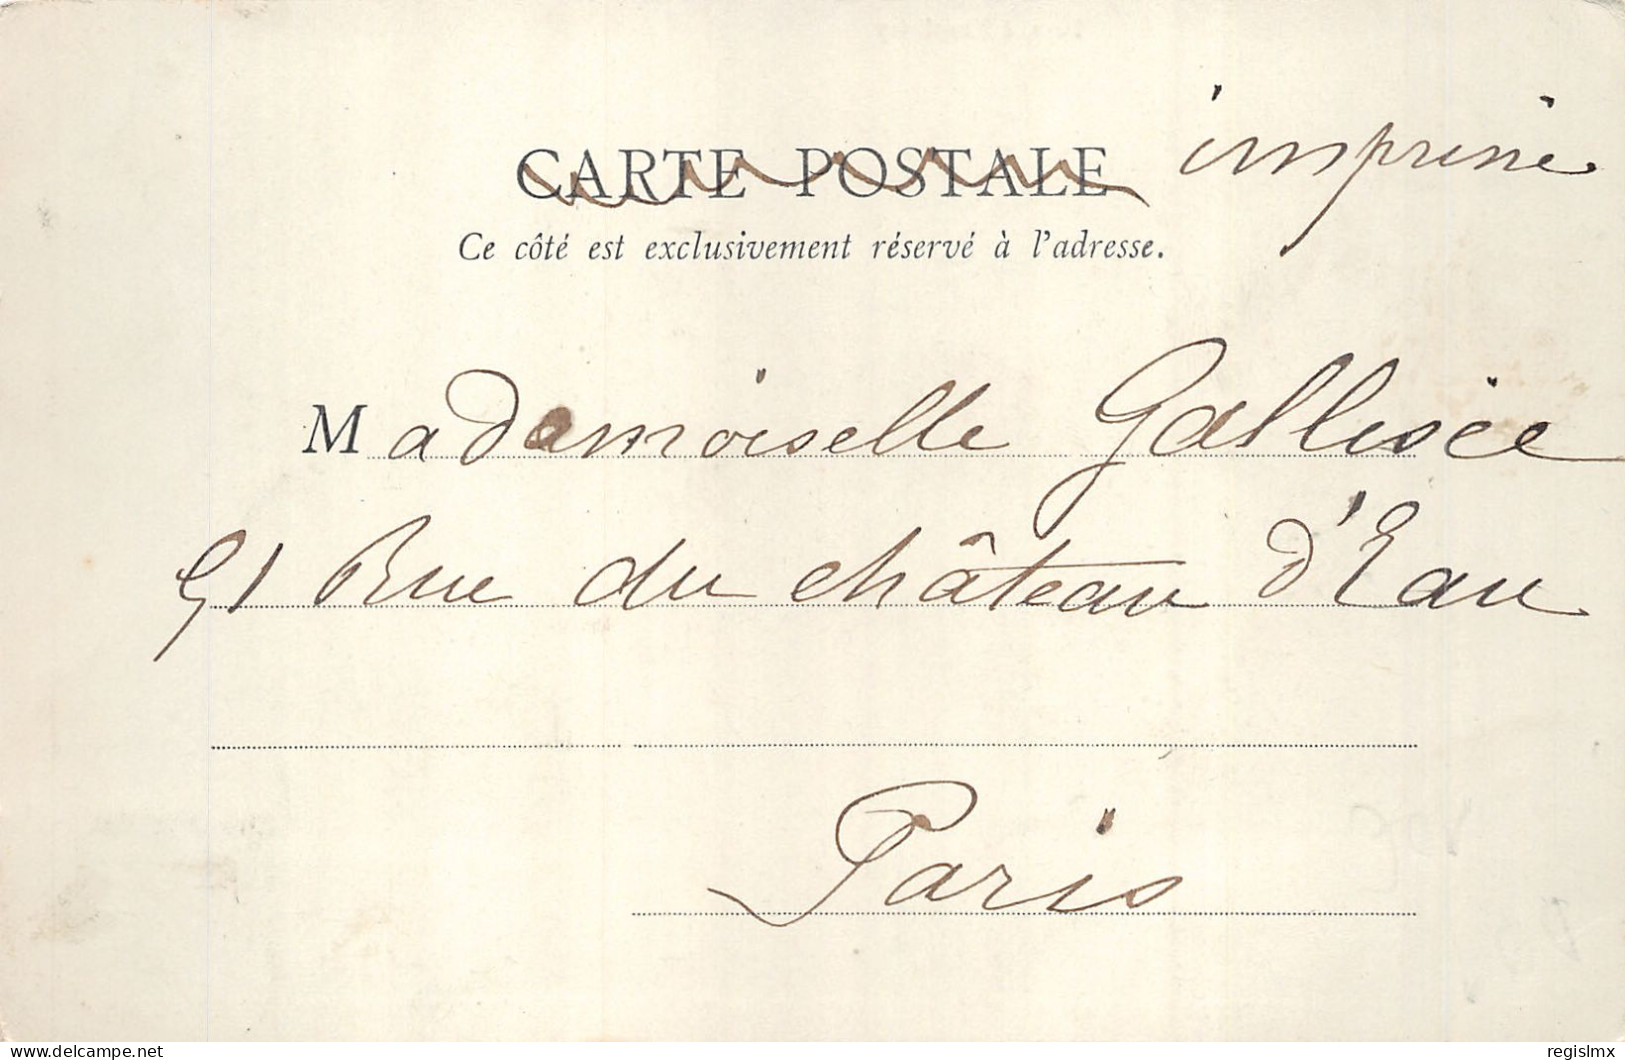 CARTE POSTALE imprimé
Ce côté est exclusivement réservé à l'adresse.
Mademoiselle
Rue du château d'Eau
Paris
regislmx
delcampe.net